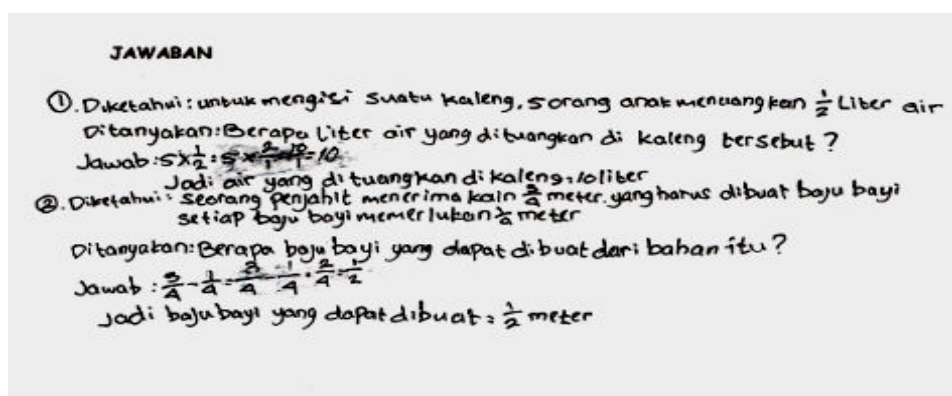 JAWABAN
①. Diketahui : untuk mengisi suatu kaleng, 5 orang anak menuangkan 1/2 Liter air
Ditanyakan : Berapa Liter air yang dituangkan di kaleng tersebut ?
Jawab : 5 x 1/2 = 5 x 2/1 = 10/1 = 10
Jadi air yang dituangkan di kaleng = 10 liter
②. Diketahui : Seorang penjahit menerima kain 3/4 meter yang harus dibuat baju bayi
setiap baju bayi memerlukan 1/4 meter
Ditanyakan : Berapa baju bayi yang dapat dibuat dari bahan itu ?
Jawab : 3/4 - 1/4 = 3/4 - 1/4 = 2/4 = 1/2
Jadi baju bayi yang dapat dibuat = 1/2 meter